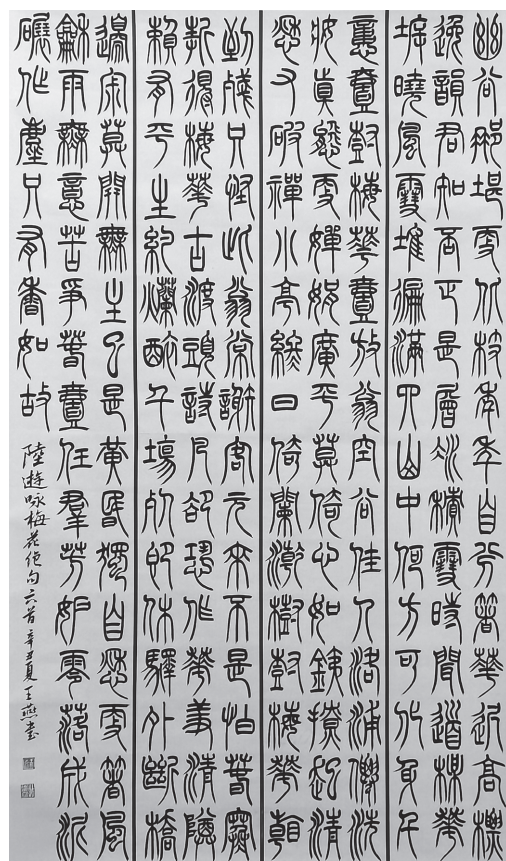 幽谷那堪更北枝年年自分箸華遲高標
逸韻君知否正是層冰積雪時聞道梅華
坼曉風雪堆遍滿四山中何方可化身千
億壹樹梅華壹放翁空谷佳人洛浦僊洗
妝真態更嬋娟廣平莫倚心如鐵撩起清
愁又破禪小亭終日倚闌干樹樹梅華看
到殘只怪此翁常謝客元來不是怕春寒
折得梅華古渡頭詩凡卻恐作華羞清罇
賴有平生約爛醉千場死即休驛外斷橋
邊寂莫開無主已是黃昏獨自愁更箸風
龢雨無意苦爭春壹任羣芳妒零落成泥
碾作塵只有香如故
陸游咏梅花絕句六首辛丑夏王燕書